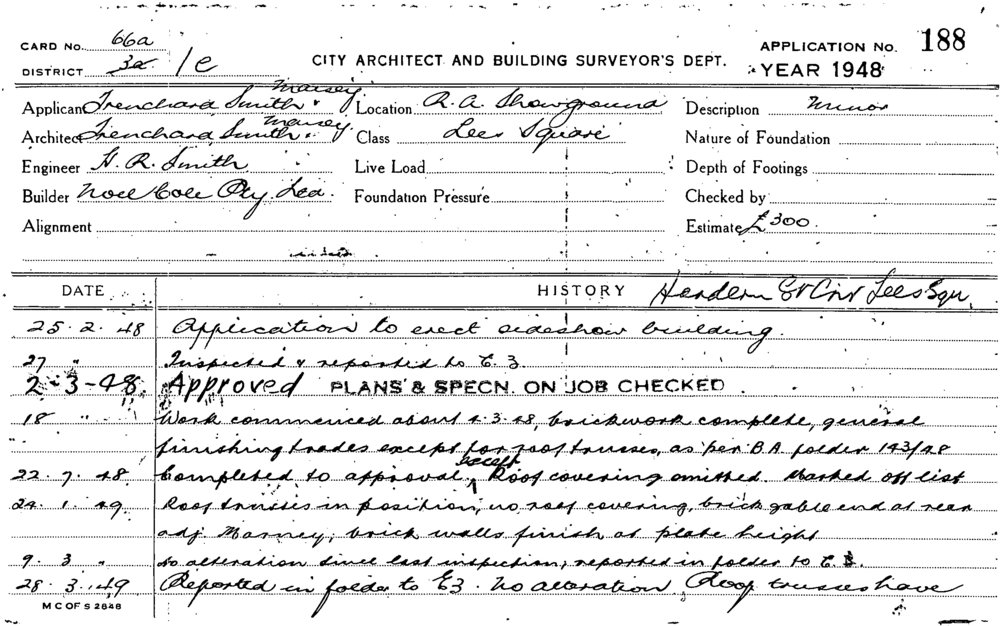 CARD No. 66a
DISTRICT 3a /e
CITY ARCHITECT AND BUILDING SURVEYOR'S DEPT.
APPLICATION No. 188
YEAR 1948
Applicant Trenchard Smith & Maisey Location R.A. Showground Description Minor
Architect Trenchard Smith & Maisey Class Lees Square Nature of Foundation
Engineer H. R. Smith Live Load Depth of Footings
Builder Noel Cole Pty Ltd. Foundation Pressure Checked by
Alignment Estimate £300.
DATE HISTORY St Cnr Lees Squ.
25. 2. 48 Application to erect sideshow building.
27 " Inspected & reported to E. 3.
2-3-48. Approved PLANS & SPECN. ON JOB CHECKED
18 " Work commenced about 4.3.48, brickwork complete, general
finishing trades except for roof trusses, as per B.A. folder 143/48
22. 7. 48 Completed to approval, except Roof covering omitted. Marked off list
24. 1. 49 Roof trusses in position, no roof covering, brick gable end at rear
adj. brick walls finish at plate height
9. 3 " No alteration since last inspection, reported in folder to E. 3.
28. 3. 49 Reported in folder to E3. No alteration. Roof trusses have
M C OF S 2848